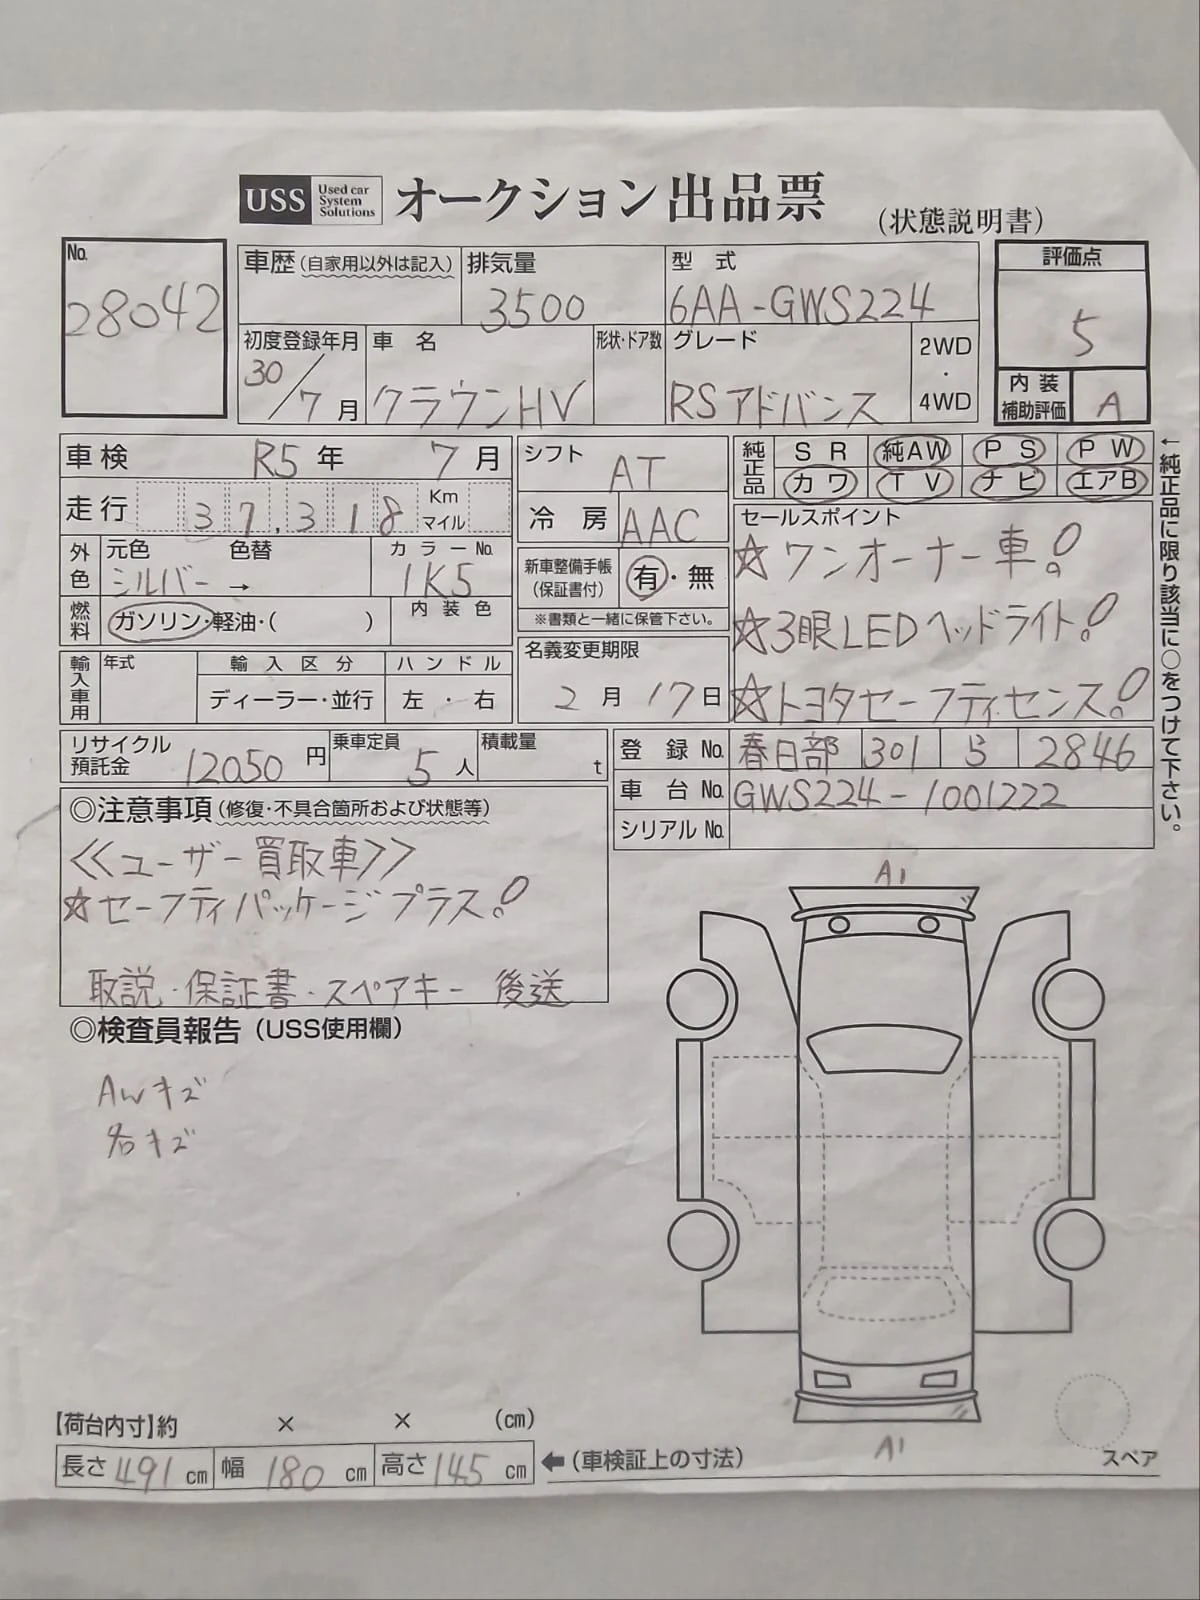 USS Used car System Solutions オークション出品票 (状態説明書)
No. 28042
車歴 (自家用以外は記入)
排気量 3500
型式 6AA-GWS224
評価点 5
初度登録年月 30/7月
車名 クラウンHV
形状・ドア数
グレード RSアドバンス
2WD・4WD
内装補助評価 A
車検 R5年 7月
シフト AT
純正品 SR 純AW PS PW
カワ TV ナビ エアB
←純正品に限り該当に○をつけて下さい。
走行 37,318 Km マイル
冷房 AAC
セールスポイント
☆ワンオーナー車!
☆3眼LEDヘッドライト!
☆トヨタセーフティセンス!
外色 元色 シルバー → 色替
カラーNo. 1K5
新車整備手帳(保証書付) 有・無
※書類と一緒に保管下さい。
燃料 ガソリン・軽油・( )
内装色
名義変更期限 2月17日
輸入車用 年式
輸入区分 ディーラー・並行
ハンドル 左・右
リサイクル預託金 12050円
乗車定員 5人
積載量 t
登録No. 春日部 301 ら 2846
車台No. GWS224-1001222
シリアルNo.
◎注意事項(修復・不具合箇所および状態等)
≪ユーザー買取車≫
☆セーフティパッケージプラス!
取説・保証書・スペアキー 後送
◎検査員報告(USS使用欄)
AWキズ
各キズ
A1
A1
スペア
【荷台内寸】約 × × (cm)
長さ491cm 幅180cm 高さ145cm ←(車検証上の寸法)